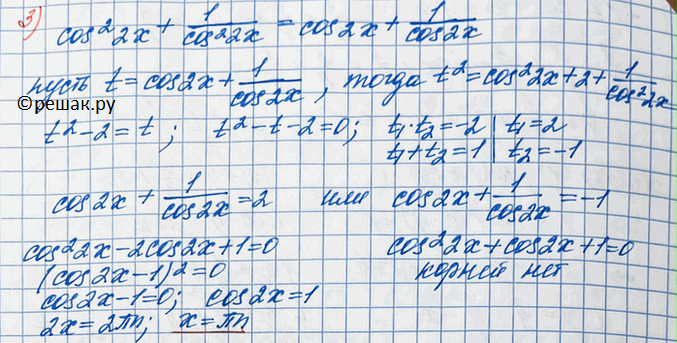 3) cos²2x + 1/cos²2x = cos2x + 1/cos2x
пусть t = cos2x + 1/cos2x, тогда t² = cos²2x + 2 + 1/cos²2x
©решак.ру
t² - 2 = t; t² - t - 2 = 0; t₁·t₂ = -2 | t₁ = 2
t₁ + t₂ = 1 | t₂ = -1
cos2x + 1/cos2x = 2 или cos2x + 1/cos2x = -1
cos²2x - 2cos2x + 1 = 0 cos²2x + cos2x + 1 = 0
(cos2x - 1)² = 0 корней нет
cos2x - 1 = 0; cos2x = 1
2x = 2πn; x = πn